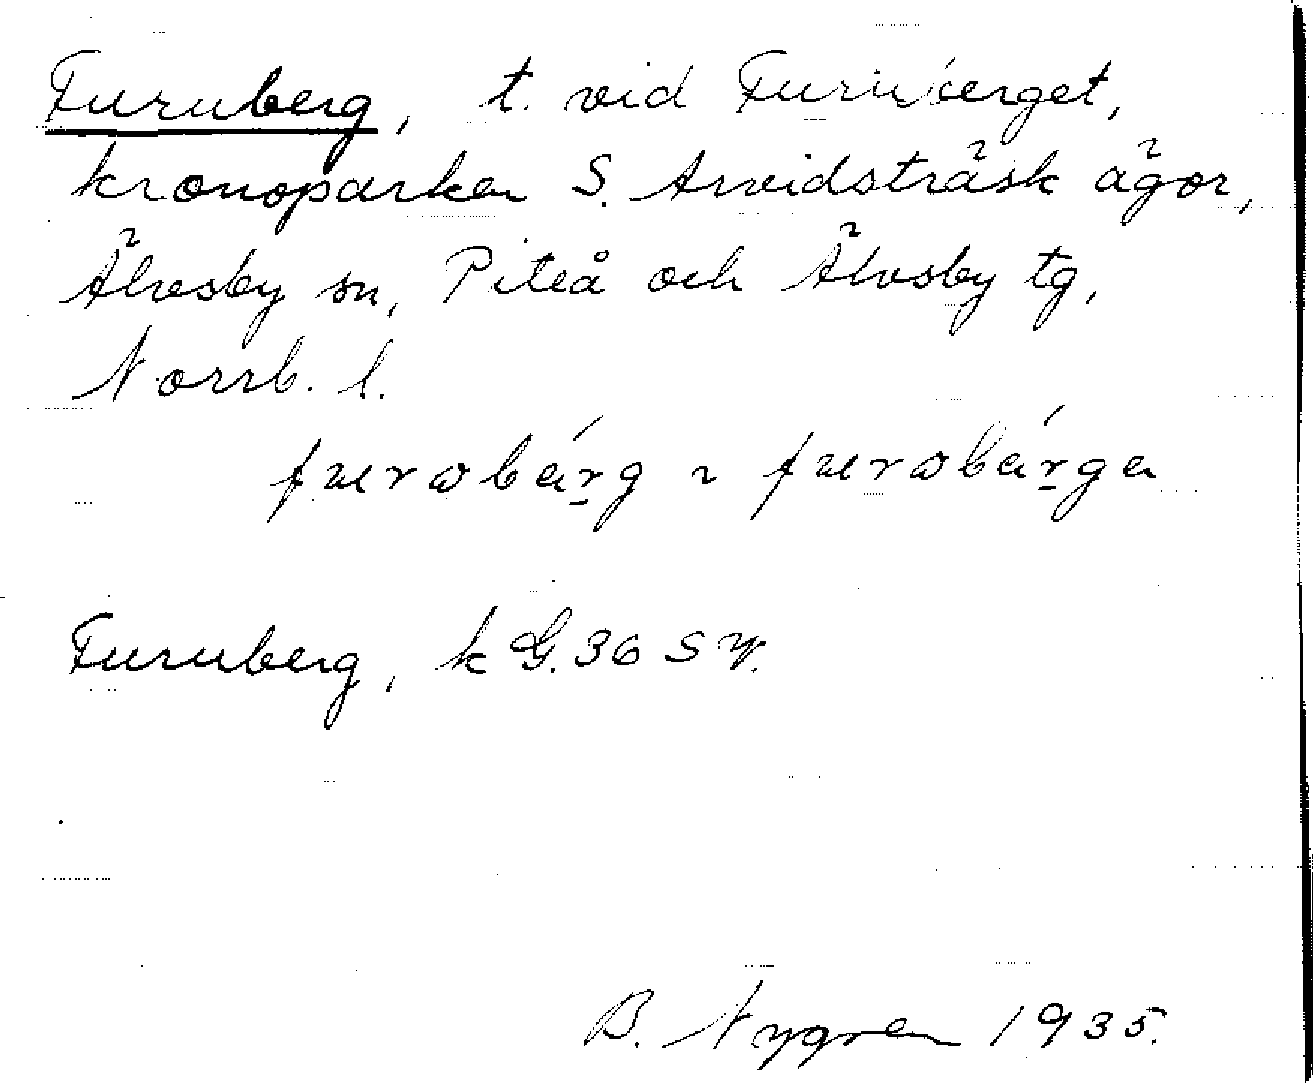 Furuberg, t. vid Furuberget,
kronoparken S. Arvidsträsk ägor,
Älvsby sn, Piteå och Älvsby tg,
Norrb. l.
furωbárg ~ furωbárga
Furuberg, k G. 36 SV.
B. Nygren 1935.